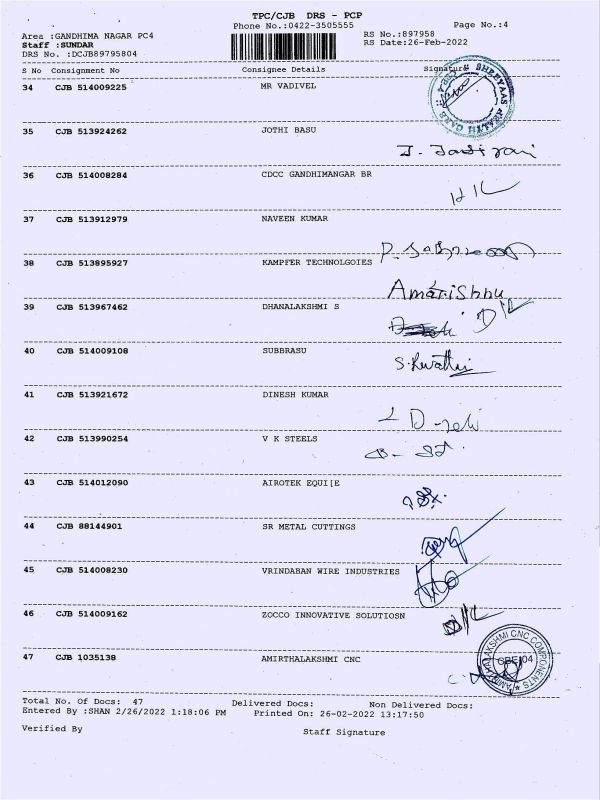 TPC/CJB DRS - PCP
Phone No.:0422-3505555 Page No.:4
Area :GANDHIMA NAGAR PC4 RS No.:897958
Staff :SUNDAR RS Date:26-Feb-2022
DRS No. :DCJB89795804
S No Consignment No Consignee Details Signature
34 CJB 514009225 MR VADIVEL
35 CJB 513924262 JOTHI BASU
36 CJB 514008284 CDCC GANDHIMANGAR BR
37 CJB 513912979 NAVEEN KUMAR
38 CJB 513895927 KAMPFER TECHNOLGOIES
Amarishnu
39 CJB 513967462 DHANALAKSHMI S
40 CJB 514009108 SUBBRASU
41 CJB 513921672 DINESH KUMAR
42 CJB 513990254 V K STEELS
43 CJB 514012090 AIROTEK EQUI[E
44 CJB 88144901 SR METAL CUTTINGS
45 CJB 514008230 VRINDABAN WIRE INDUSTRIES
46 CJB 514009162 ZOCCO INNOVATIVE SOLUTIOSN
47 CJB 1035138 AMIRTHALAKSHMI CNC
Total No. Of Docs: 47 Delivered Docs: Non Delivered Docs:
Entered By :SHAN 2/26/2022 1:18:06 PM Printed On: 26-02-2022 13:17:50
Verified By Staff Signature